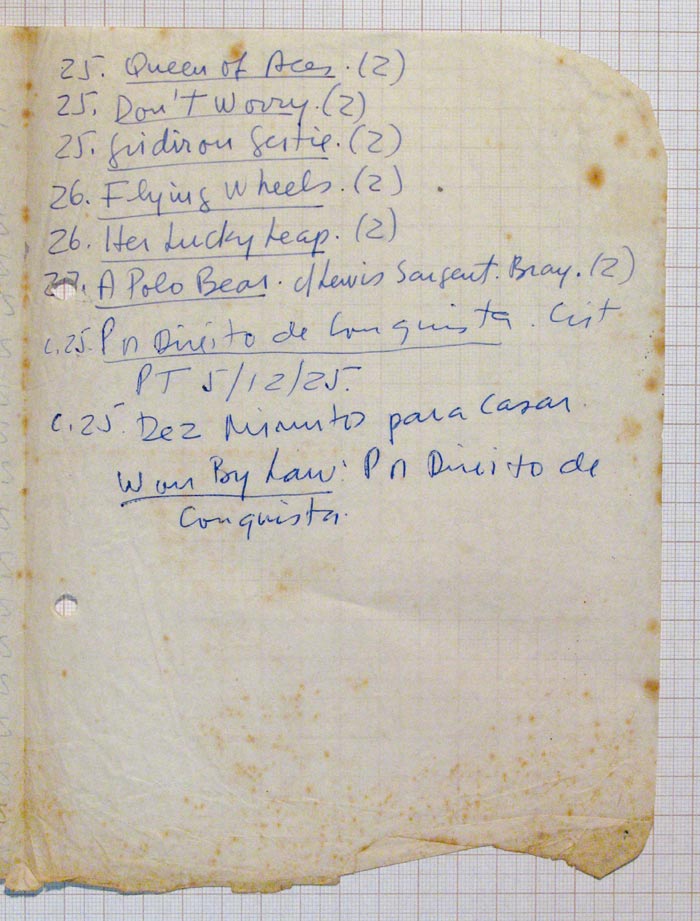 25. Queen of Aces. (2)
25. Don't Worry. (2)
25. Gridiron Gertie. (2)
26. Flying Wheels. (2)
26. Her Lucky Leap. (2)
27. A Polo Bear. c/Lewis Sargent. Bray. (2)
c.25. Por Direito de Conquista. Cist
PT 5/12/25.
c.25. Dez Minutos para Casar.
Won By Law: Por Direito de
Conquista.